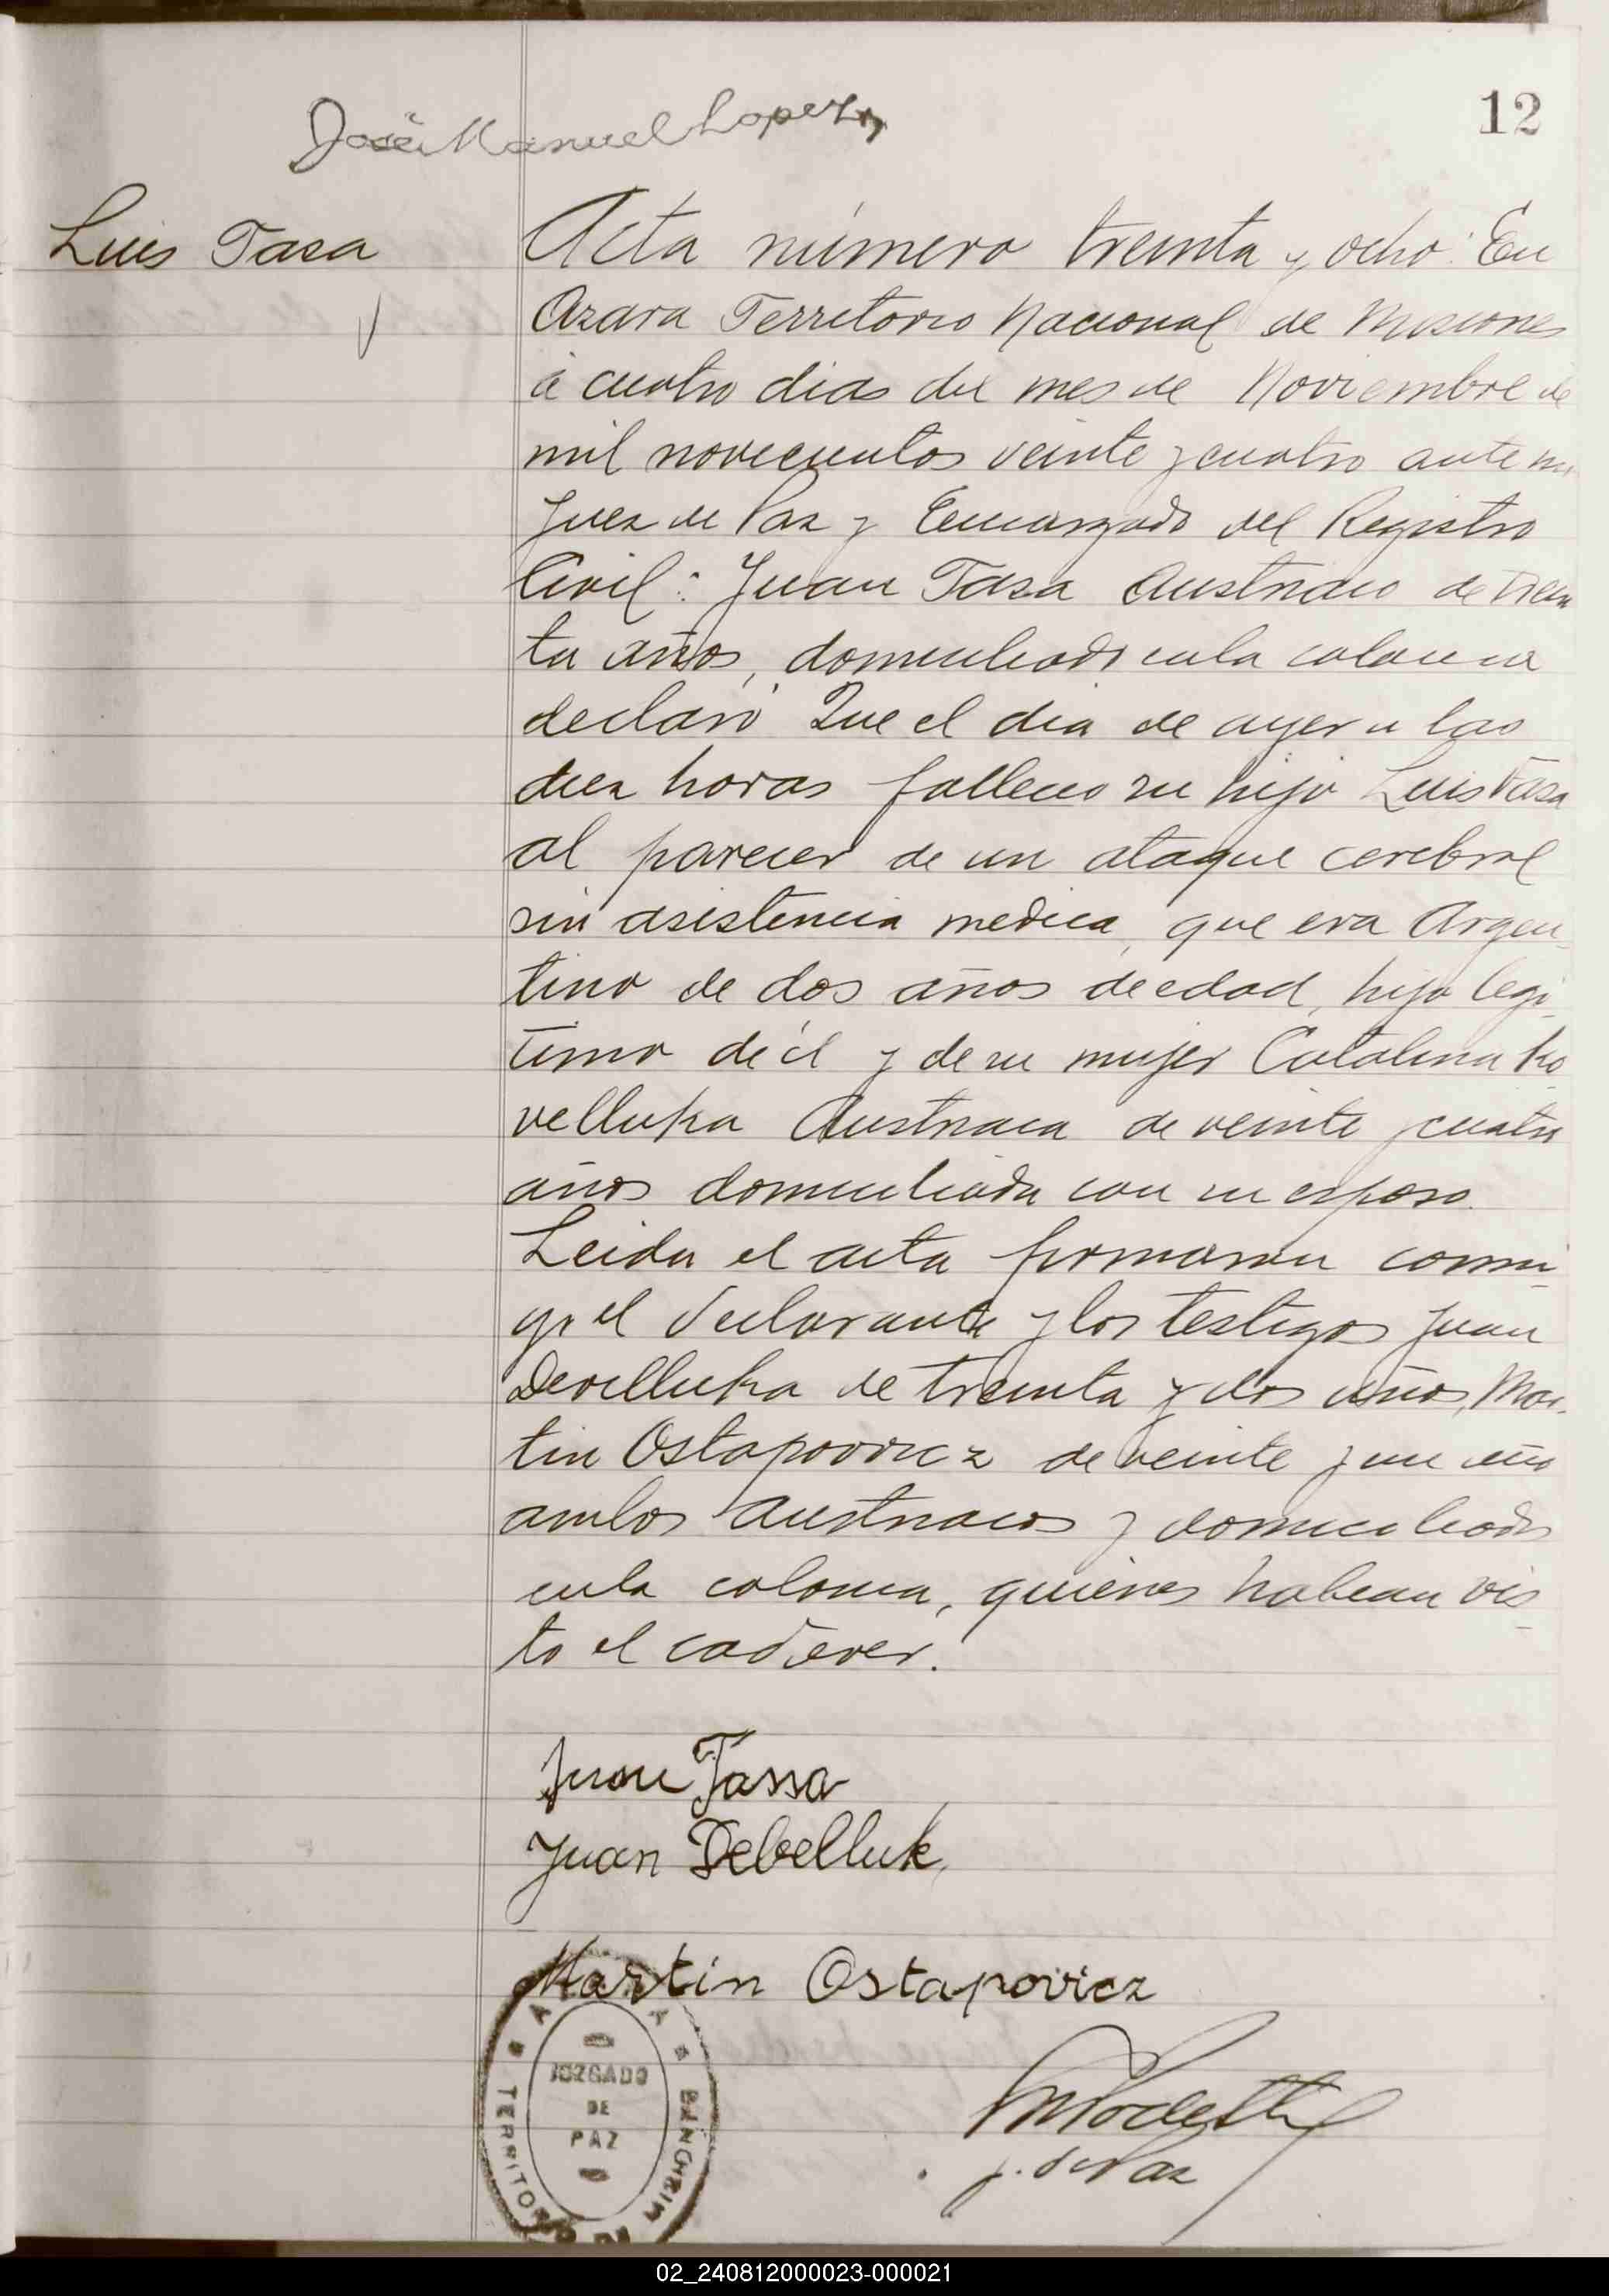 12
José Manuel Lopez
Luis Tasa
Acta número treinta y ocho: En
Azara Territorio Nacional de Misiones
á cuatro dias del mes de Noviembre de
mil novecientos veinte y cuatro ante mi
Juez de Paz y Encargado del Registro
Civil: Juan Tasa Austriaco de trein
ta años, domiciliado en la colonia
declaró: Que el dia de ayer a las
diez horas falleció su hijo Luis Tasa
al parecer de un ataque cerebral
sin asistencia medica, que era Argen-
tino de dos años de edad, hijo legi-
timo de él y de su mujer Catalina Ko-
velluka Austriaca de veinte y cuatro
años domiciliada con su esposo.
Leida el acta firmaron conmi-
go el declarante y los testigos Juan
Develluka de treinta y dos años, Mar-
tin Ostapovicz de veinte y un año
ambos austriacos y domiciliados
en la colonia, quienes habian vis-
to el cadaver.
Juan Tassa
Juan Debelluk
Martin Ostapovicz
JUZGADO
DE
PAZ
TERRITORIO DE
J. de Paz
02_240812000023-000021